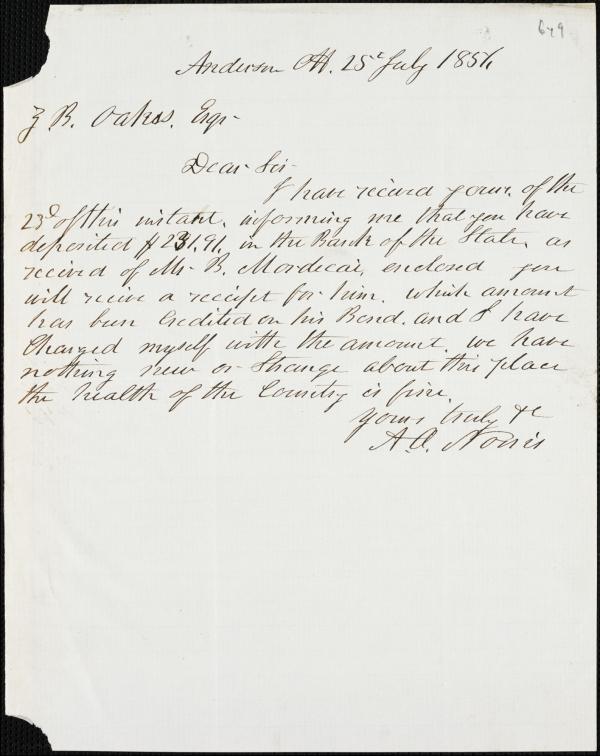 649
Anderson CH. 25th July 1856
Z. B. Oakes. Esqr
Dear Sir
I have recived yours. of the
23d of this instant. informing me that you have
deposited $231.91. in the Bank of the State, as
recived of Mr B. Mordecai, enclosed you
will recive a recipt for him. which amount
has been Credited on his Bond. and I have
Charged myself with the amount. we have
nothing new or Strange about this place
the health of the Country is fine.
yours truly &c
A. O. Norris